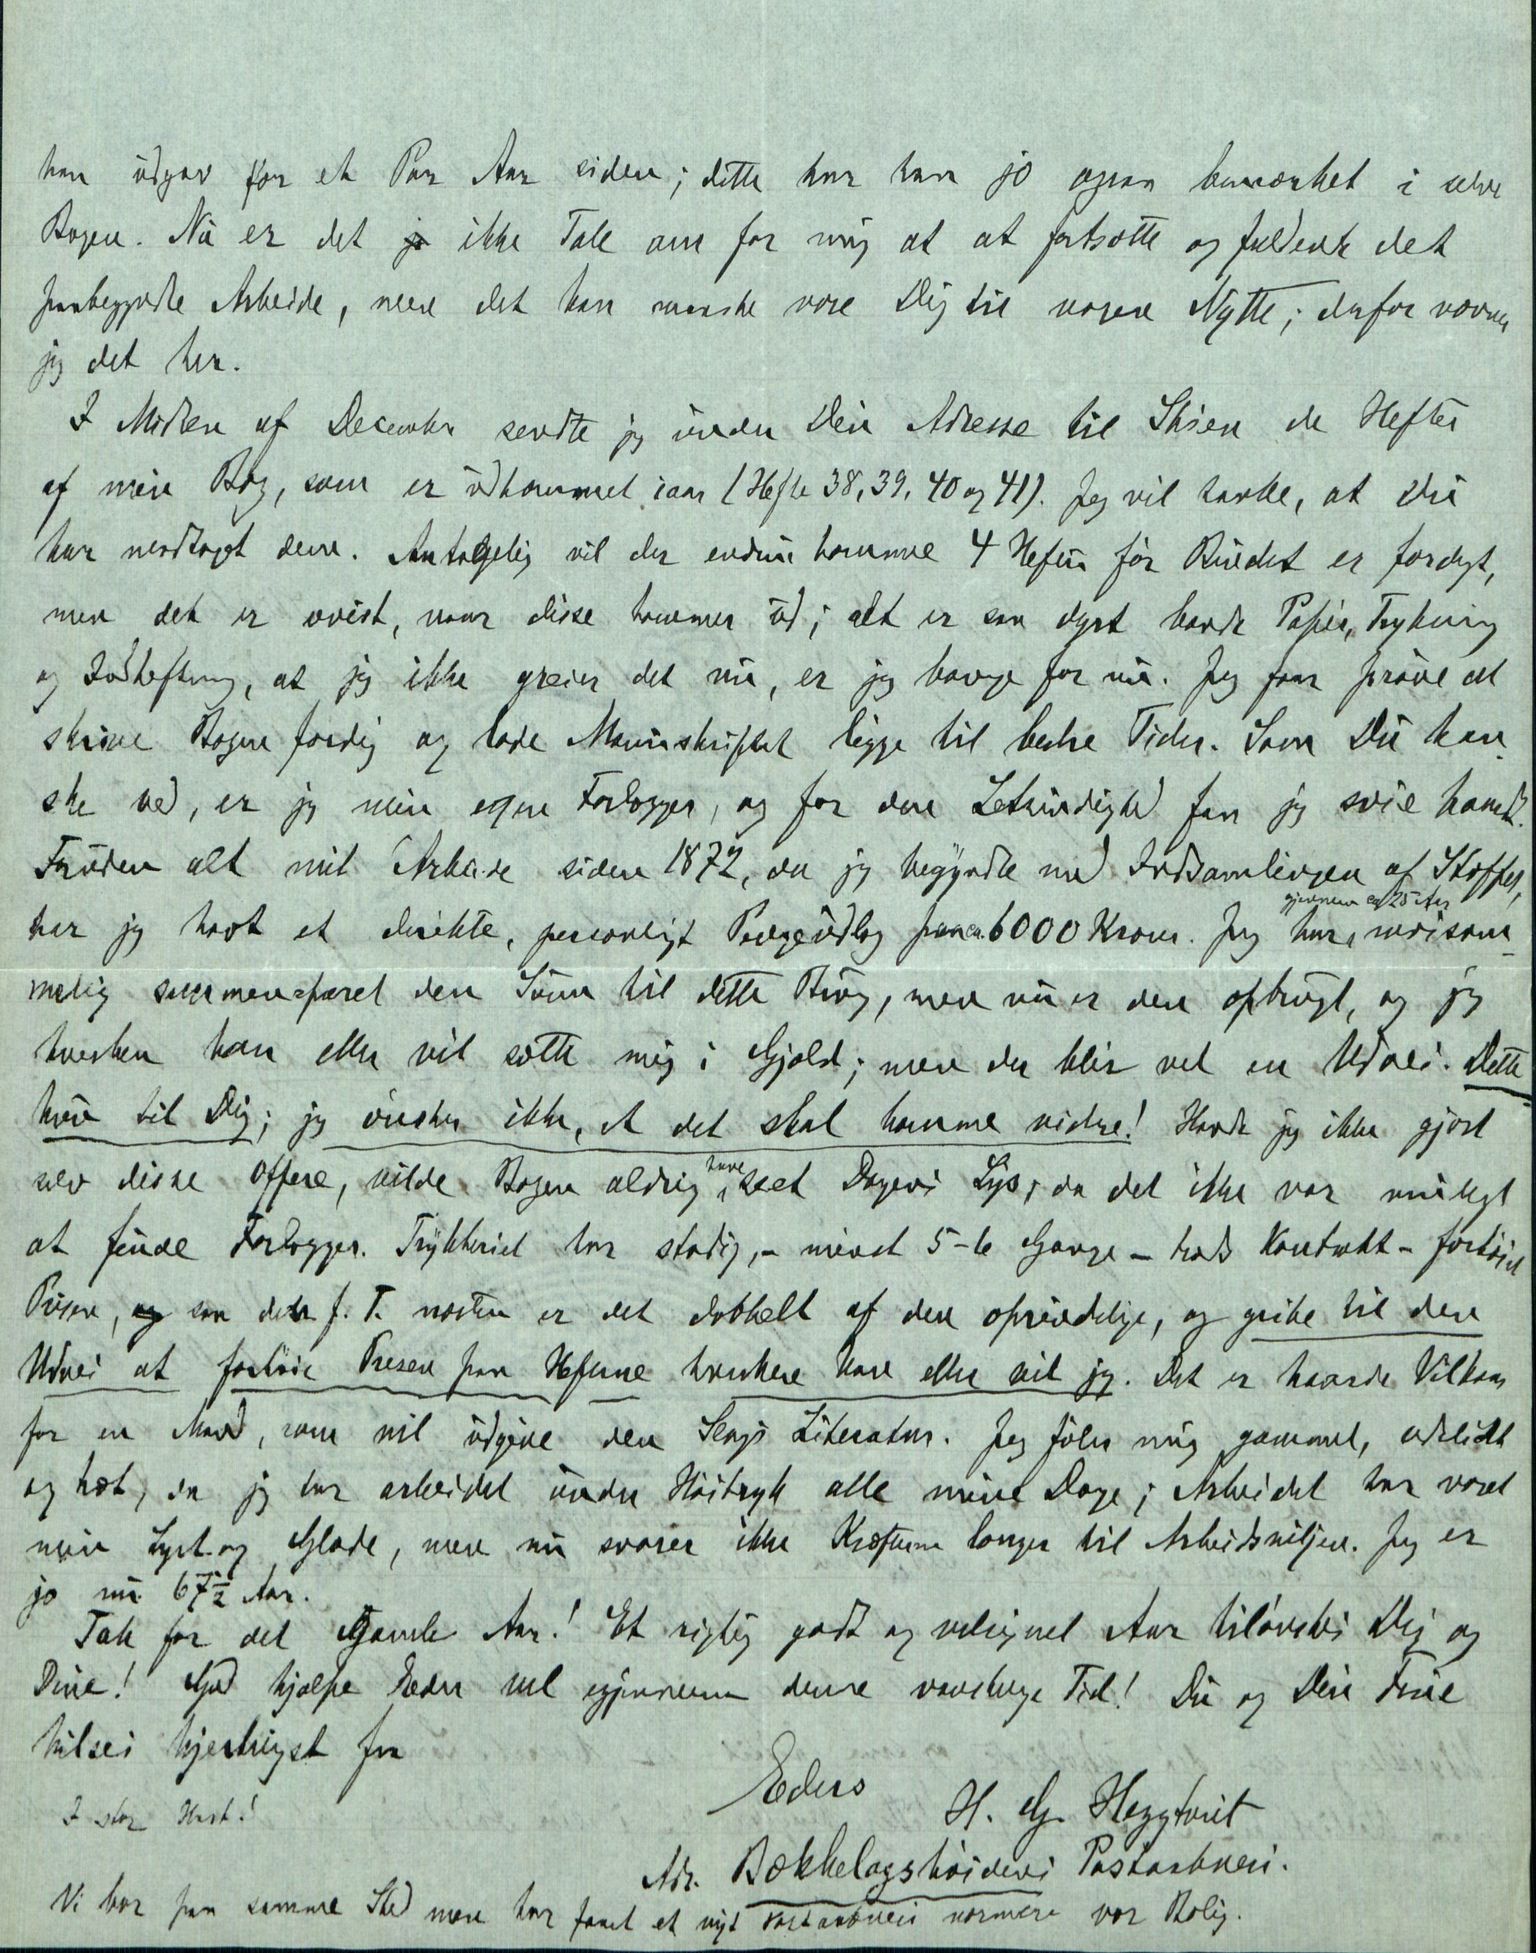 han udgav for et Par Aar siden; dette har han jo ogsaa bemærket i selve
Bogen. Nu er det jo ikke Tale om for mig at at fortsætte og fuldende det
paabegyndte Arbeide, men det kan maaske være Dig til nogen Nytte; derfor nævner
jeg det her.
I Midten af December sendte jeg under Din Adresse til Skien de Hefter
af min Bog, som er udkommet iaar (Hefte 38, 39, 40 og 41). Jeg vil haabe, at Du
har modtaget dem. Antagelig vil der endnu komme 4 Hefter før Bindet er færdigt,
men det er uvist, naar disse kommer ud; alt er saa dyrt baade Papir, Trykning
og Indheftning, at jeg ikke greier det nu, er jeg bange for nu. Jeg faar prøve at
skrive Bogen færdig og lade Manuskriptet ligge til bedre Tider. Som Du kan-
ske ved, er jeg min egen Forlægger, og for den Letsindighed faar jeg svie haardt.
Foruden alt mit Arbeide siden 1872, da jeg begyndte med Indsamlingen af Stoffet,
har jeg havt et direkte, personligt Pengeudlæg paa ca. 6000 Kroner. Jeg har gjennem ca 25 Aar møisom-
melig sammensparet den Sum til dette Brug, men nu er den opbrugt, og jeg
hverken kan eller vil sætte mig i Gjæld; men der blir vel en Udvei. Dette
kun til Dig; jeg ønsker ikke, at det skal komme videre! Havde jeg ikke gjort
selv disse Offere, vilde Bogen aldrig have seet Dagens Lys, da det ikke var muligt
at finde Forlægger. Trykkeriet har stadig, - mindst 5-6 Gange - trods Kontrakt - forhøiet
Prisen, og saa den f. T. næsten er det dobbelt af den oprindelige, og gribe til den
Udvei at forhøie Prisen paa Hefterne hverken kan eller vil jeg. Det er haarde Vilkaar
for en Mand, som vil udgive den Slags Literatur. Jeg føler mig gammel, udslidt
og træt, da jeg har arbeidet under Høitryk alle mine Dage; Arbeidet har været
min Lyst og Glæde, men nu svarer ikke Kræfterne længer til Arbeidsviljen. Jeg er
jo nu 67½ Aar.
Tak for det Gamle Aar! Et rigtig godt og velsignet Aar tilønskes Dig og
Dine! Gud hjælpe Eder vel igjennem denne vanskelige Tid! Du og Din Frue
hilses hjerteligst fra
Eders H. G. Heggtveit
I stor Hast!
Adr. Bækkelagshøidens Postaabneri.
Vi bor paa samme Sted men har faaet et nyt Postaabneri nærmere vor Bolig.